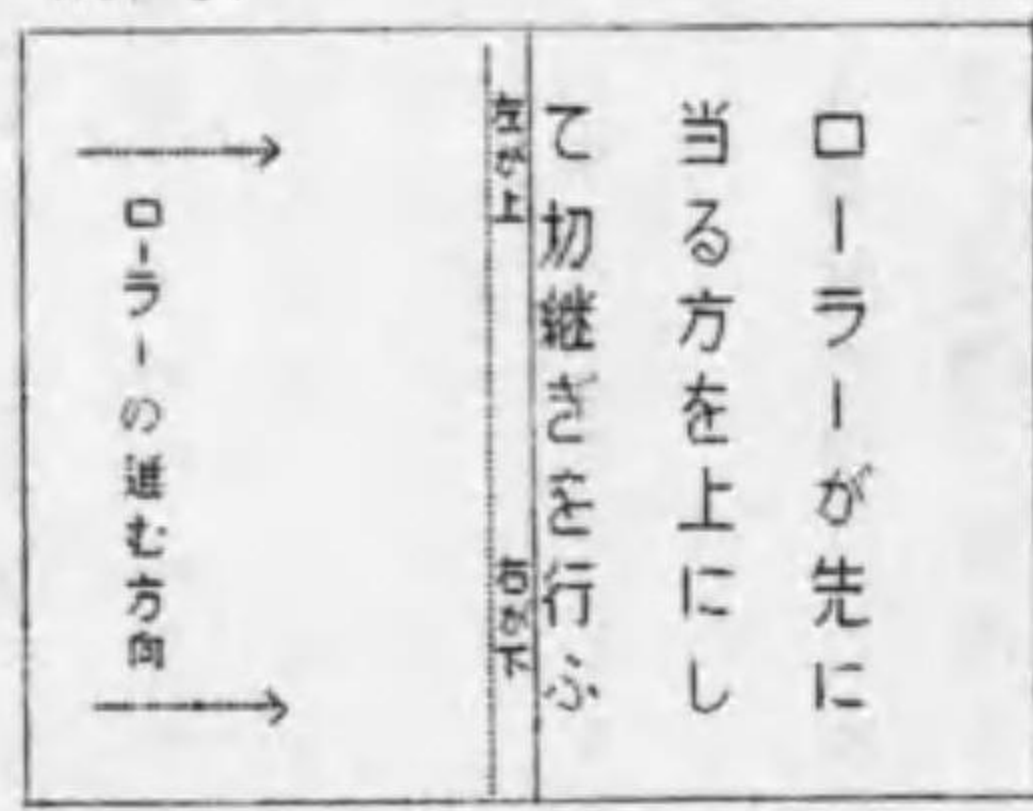 ローラーが先に
当る方を上にし
て切継ぎを行ふ
左が上
右が下
ローラーの進む方向